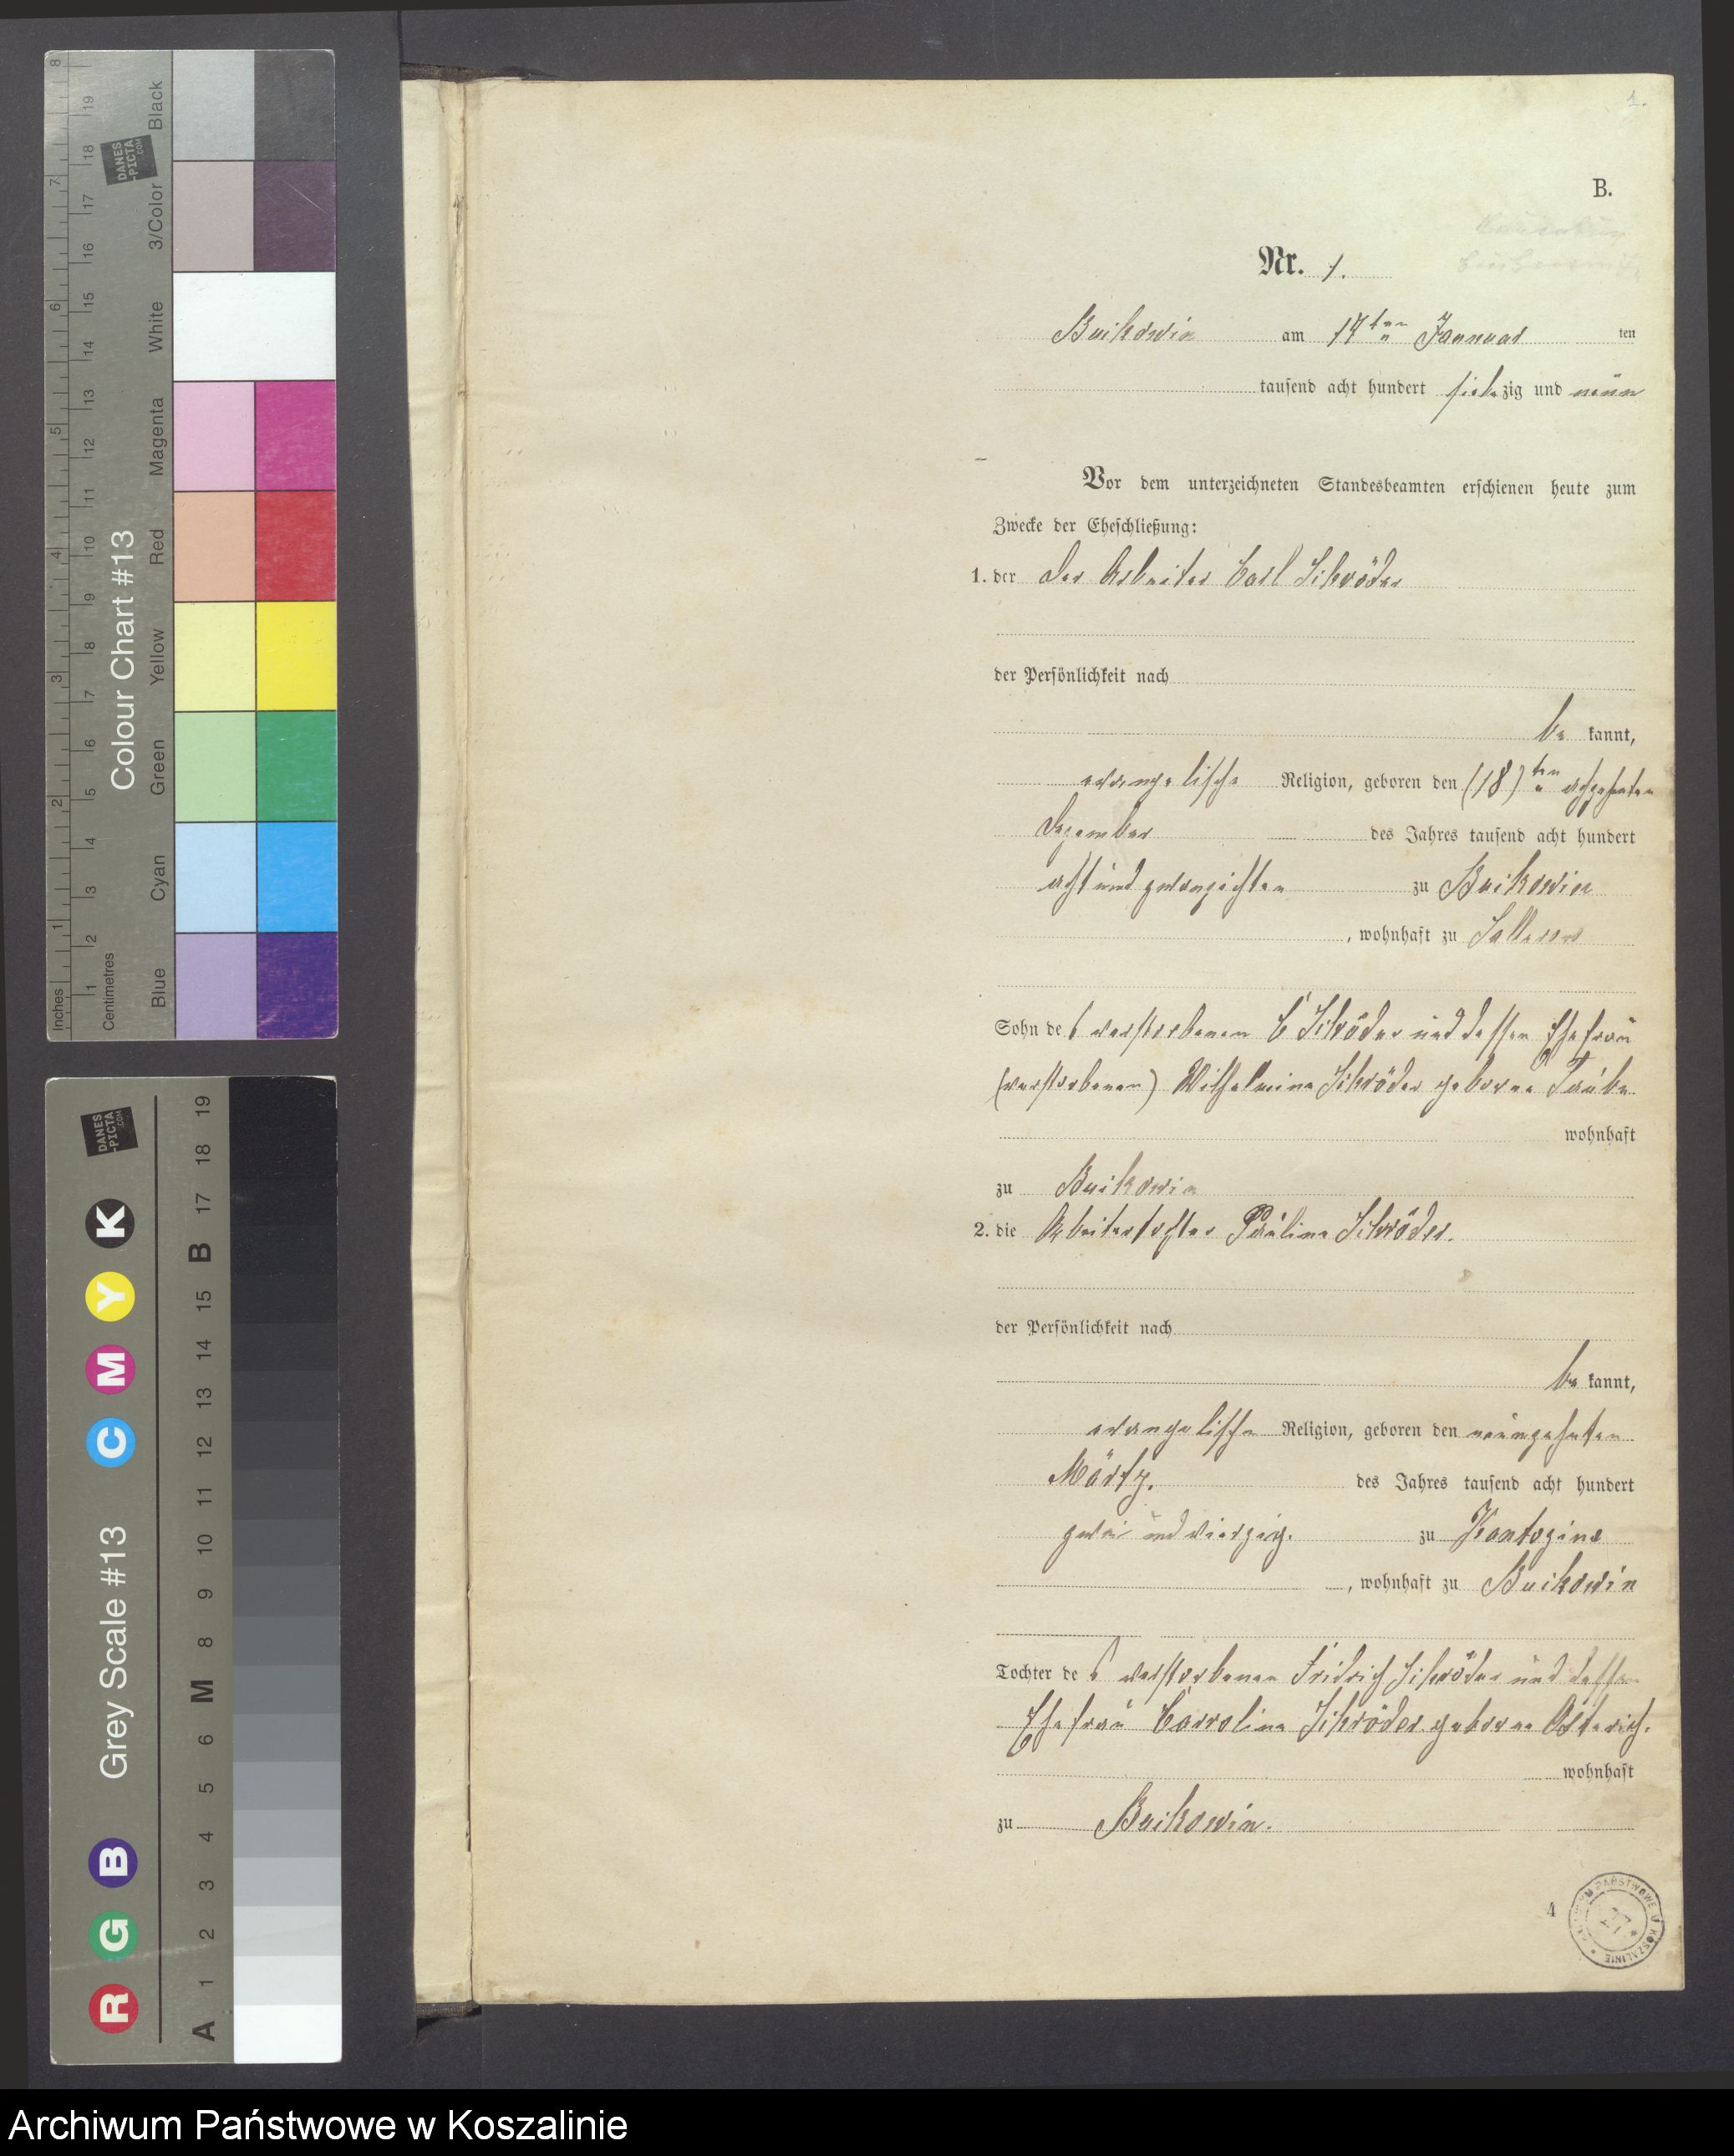 1.
B.
Nr. 1.
Buikowin am 14ten Januar ten
tausend acht hundert siebzig und neün
Vor dem unterzeichneten Standesbeamten erschienen heute zum
Zwecke der Eheschließung:
1. der der Arbeiter Carl Schröder
der Persönlichkeit nach
be kannt,
evangelische Religion, geboren den (18)ten achzehnten
Dezember des Jahres tausend acht hundert
acht und zwanzichsten zu Buikowin
, wohnhaft zu
Sohn des verstorbenen C Schröder und dessen Ehefrau
(verstorbenen) Wilhelmine Schröder geborne Taube
wohnhaft
zu Buikowin
2. die Arbeitertochter Pauline Schröder.
der Persönlichkeit nach
be kannt,
evangelische Religion, geboren den neunzehnten
Märtz. des Jahres tausend acht hundert
zwei und vierzig. zu
, wohnhaft zu Buikowin
Tochter des verstorbenen Fridrich Schröder und dessen
Ehefrau Carroline Schröder geborne
wohnhaft
zu Buikowin.
Inches
Centimetres
Colour Chart #13
Blue
Cyan
Green
Yellow
Red
Magenta
White
3/Color
Black
DANES
-PICTA
.COM
Grey Scale #13
R G B C M Y K
A 1 2 3 4 5 6 M 8 9 10 11 12 13 14 15 B 17 18 19
DANES
-PICTA
.COM
Archiwum Państwowe w Koszalinie